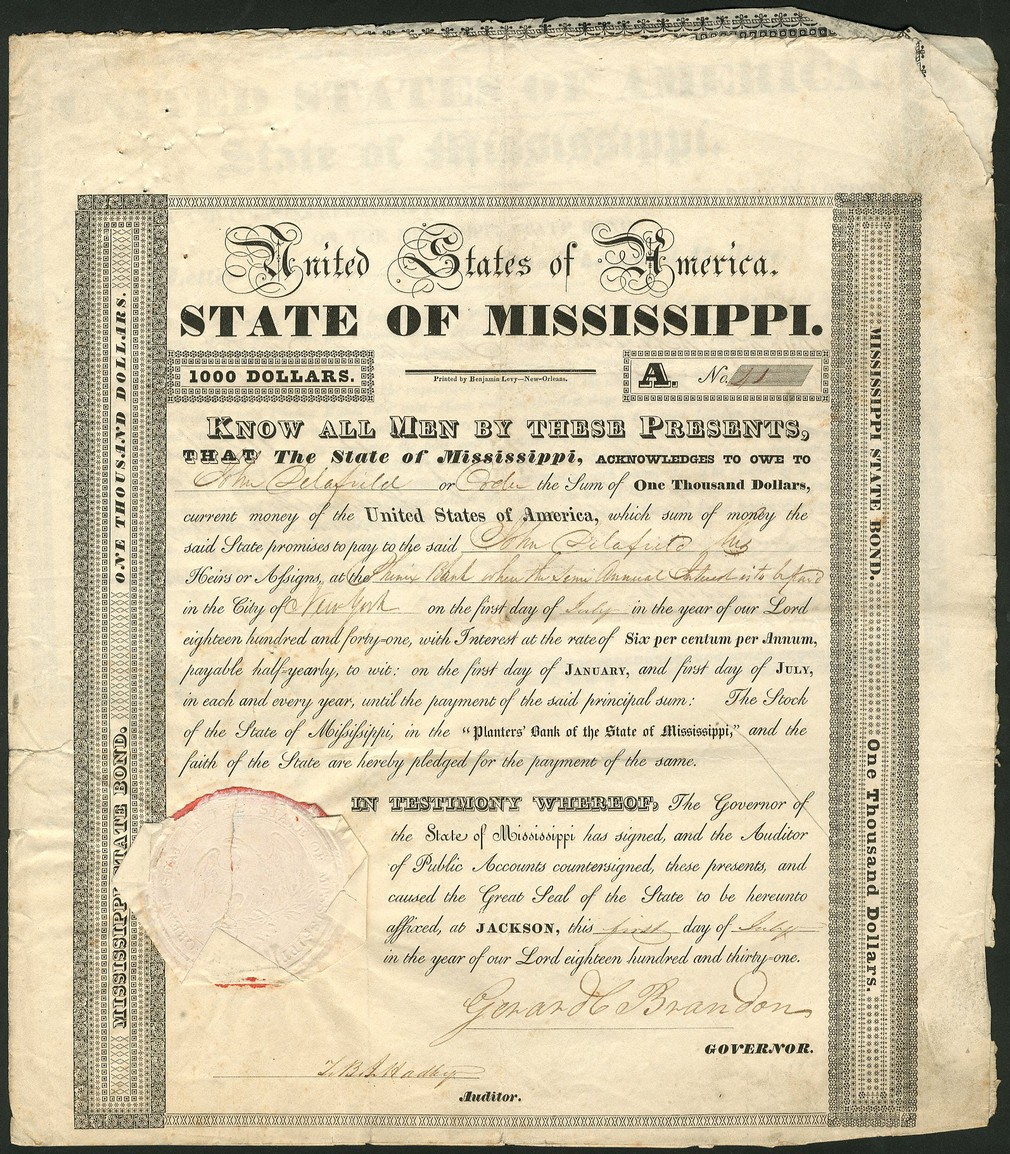 United States of America.
STATE OF MISSISSIPPI.
1000 DOLLARS.
Printed by Benjamin Levy—New-Orleans.
A. No. 11
KNOW ALL MEN BY THESE PRESENTS,
THAT The State of Mississippi, ACKNOWLEDGES TO OWE TO
John Delafield or Order the Sum of One Thousand Dollars,
current money of the United States of America, which sum of money the
said State promises to pay to the said John Delafield his
Heirs or Assigns, at the Phenix Bank when the Semi Annual Interest is to be paid
in the City of New York on the first day of July in the year of our Lord
eighteen hundred and forty-one, with Interest at the rate of Six per centum per Annum,
payable half-yearly, to wit: on the first day of JANUARY, and first day of JULY,
in each and every year, until the payment of the said principal sum: The Stock
of the State of Mississippi, in the "Planters' Bank of the State of Mississippi," and the
faith of the State are hereby pledged for the payment of the same.
IN TESTIMONY WHEREOF, The Governor of
the State of Mississippi has signed, and the Auditor
of Public Accounts countersigned, these presents, and
caused the Great Seal of the State to be hereunto
affixed, at JACKSON, this first day of July
in the year of our Lord eighteen hundred and thirty-one.
Gerard C Brandon
GOVERNOR.
T. B. J. Hadley
Auditor.
MISSISSIPPI STATE BOND. ONE THOUSAND DOLLARS.
MISSISSIPPI STATE BOND. One Thousand Dollars.